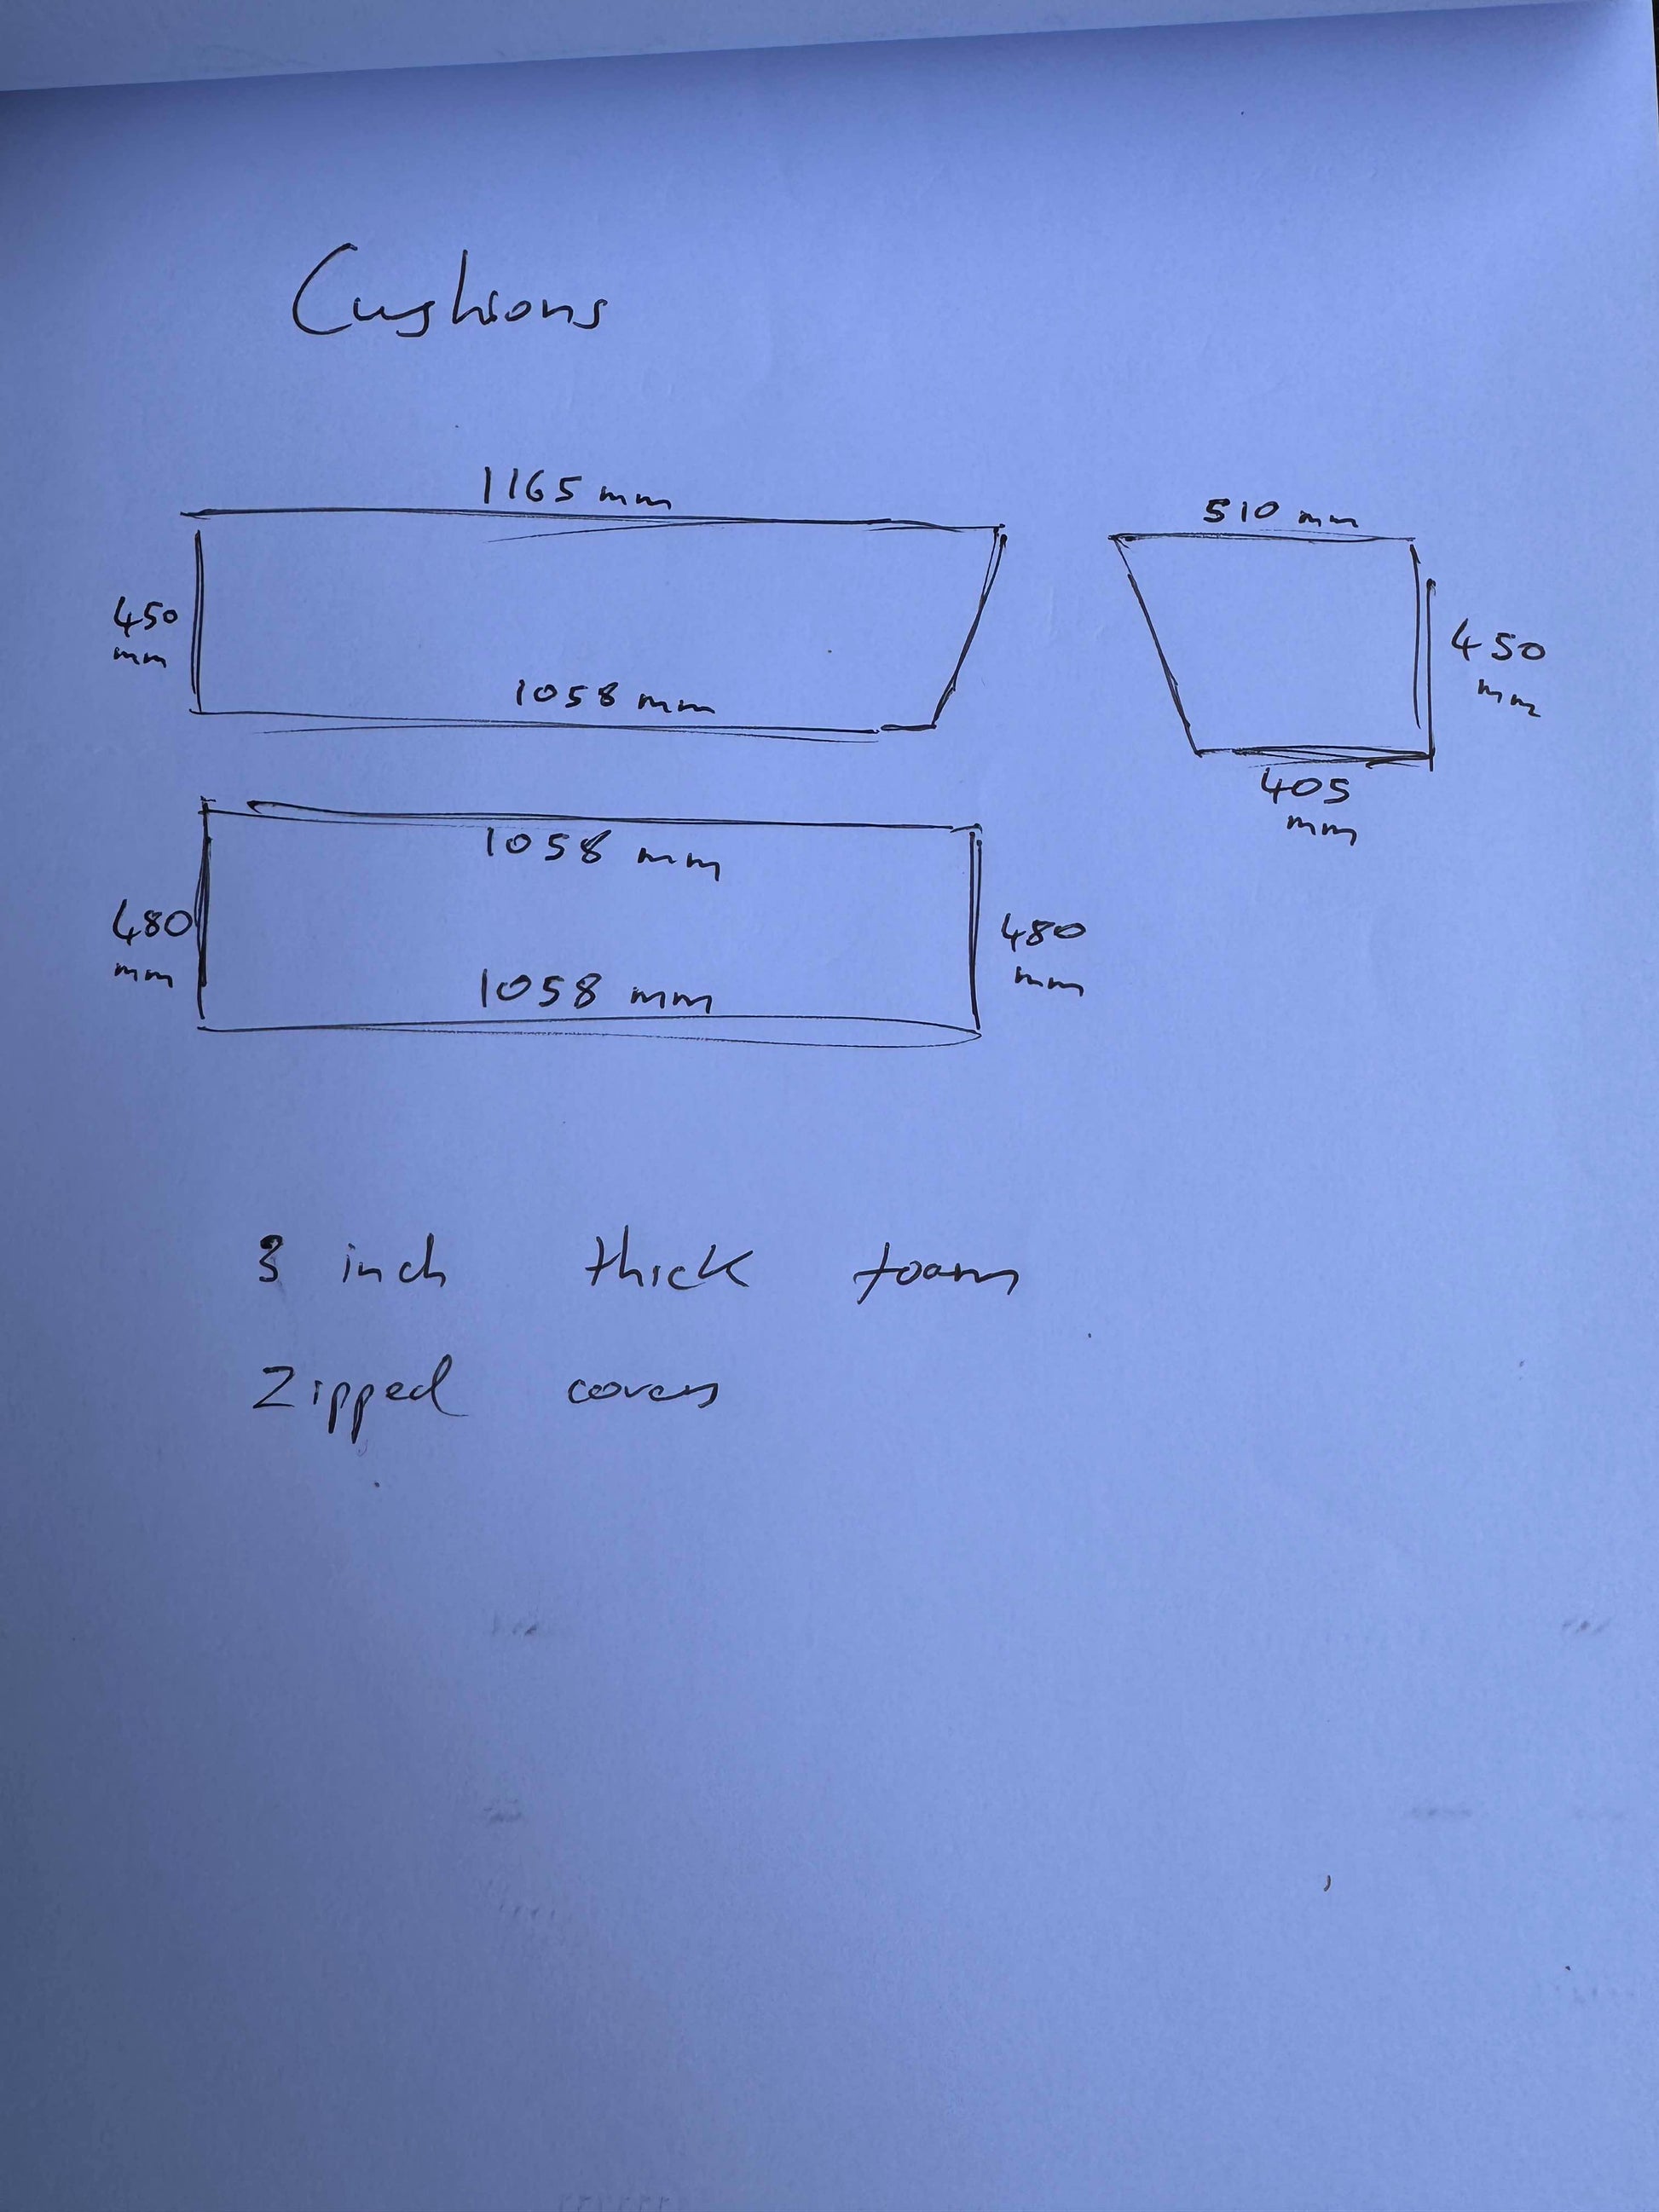 Cushions
1165 mm
510 mm
450
mm
450
mm
1058 mm
405
mm
1058 mm
480
mm
480
mm
1058 mm
3 inch thick foam
Zipped covers